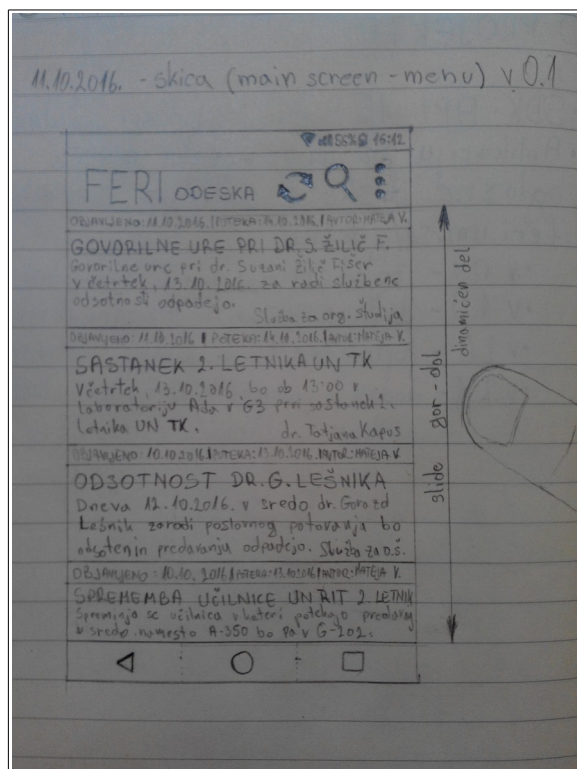 11.10.2016. - skica (main screen - menu) v 0.1
55% 16:12
FERI ODESKA
OBJAVLJENO: 11.10.2016. | POTEKA: 14.10.2016. | AVTOR: MATEJA V.
GOVORILNE URE PRI DR. S. ŽILIČ F.
Govorilne ure pri dr. Suzani Žilič Fišer
v četrtek, 13.10.2016. za radi službene
odsotnosti odpadejo.
Služba za org. študija
OBJAVLJENO: 11.10.2016 | POTEKA: 14.10.2016. | AVTOR: MATEJA V.
SASTANEK 2. LETNIKA UN TK
V četrtek, 13.10.2016 bo ob 13:00 v
laboratoriju Ada v G3 prvi sostanek 2.
letnika UN TK.
dr. Tatjana Kapus
OBJAVLJENO: 10.10.2016. | POTEKA: 13.10.2016. | AVTOR: MATEJA V.
ODSOTNOST DR. G. LEŠNIKA
Dneva 12.10.2016. v sredo dr. Gorazd
Lešnik zaradi poslovnog potovanja bo
odsoten in predavanja odpadejo. Služba za O.Š.
OBJAVLJENO: 10.10.2016 | POTEKA: 13.10.2016 | AVTOR: MATEJA V.
SPREMEMBA UČILNICE UN RIT 2. LETNIK
Spreminja se učilnica v kateri potekajo
v sredo. namesto A-350 bo pa v G-202.
slide gor - dol
dinamičen del